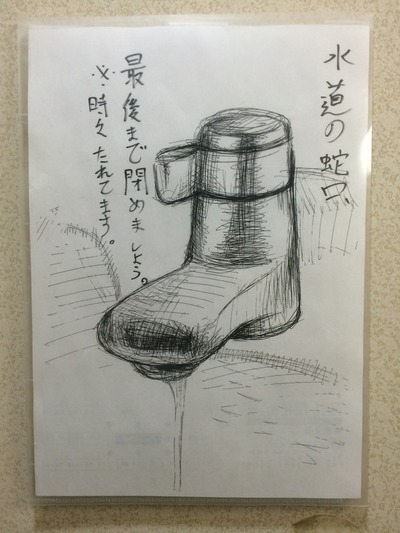 水道の蛇口、
最後まで閉めましょう。
※時々たれてきます。